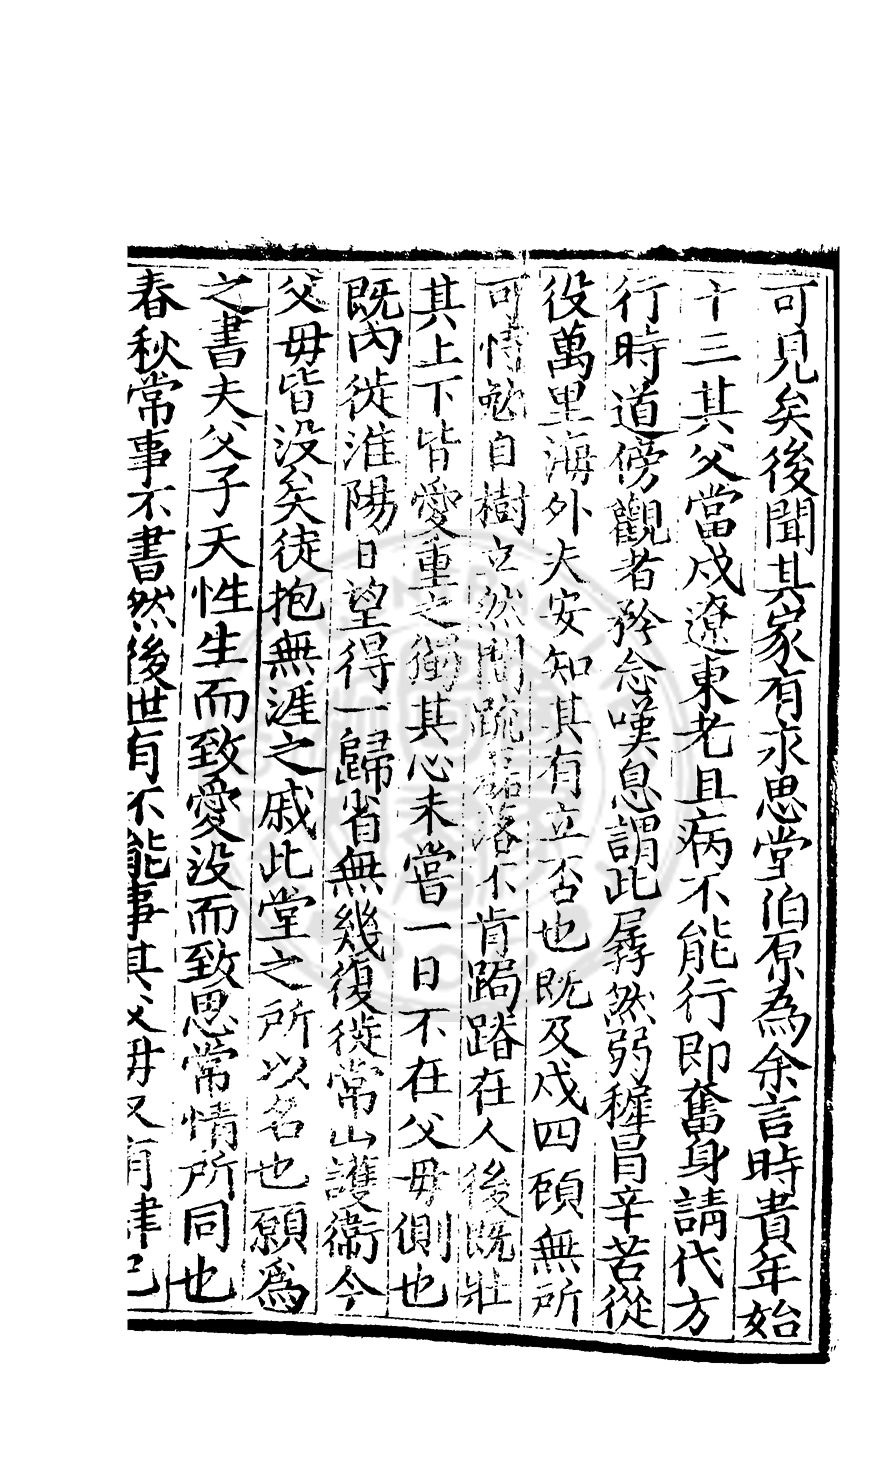 可見矣後聞其家有永思堂泊原為余言時貴年始
十三其父當戍遼東老且病不能行即奮身請代方
行時道傍觀者矜念嘆息謂此孱然弱穉冒辛苦從
役萬里海外夫安知其有立否也既及戍四顧無所
可恃勉自樹立然間䟽磊落不肯跼蹐在人後既壯
其上下皆愛重之獨其心未嘗一日不在父毋側也
既內徙淮陽日望得一歸省無幾復徙常山護衞今
父毋皆没矣徒抱無涯之戚此堂之所以名也願爲
之書夫父子天性生而致愛没而致思常情所同也
春秋常事不書然後世有不能事其父毋又有肆己